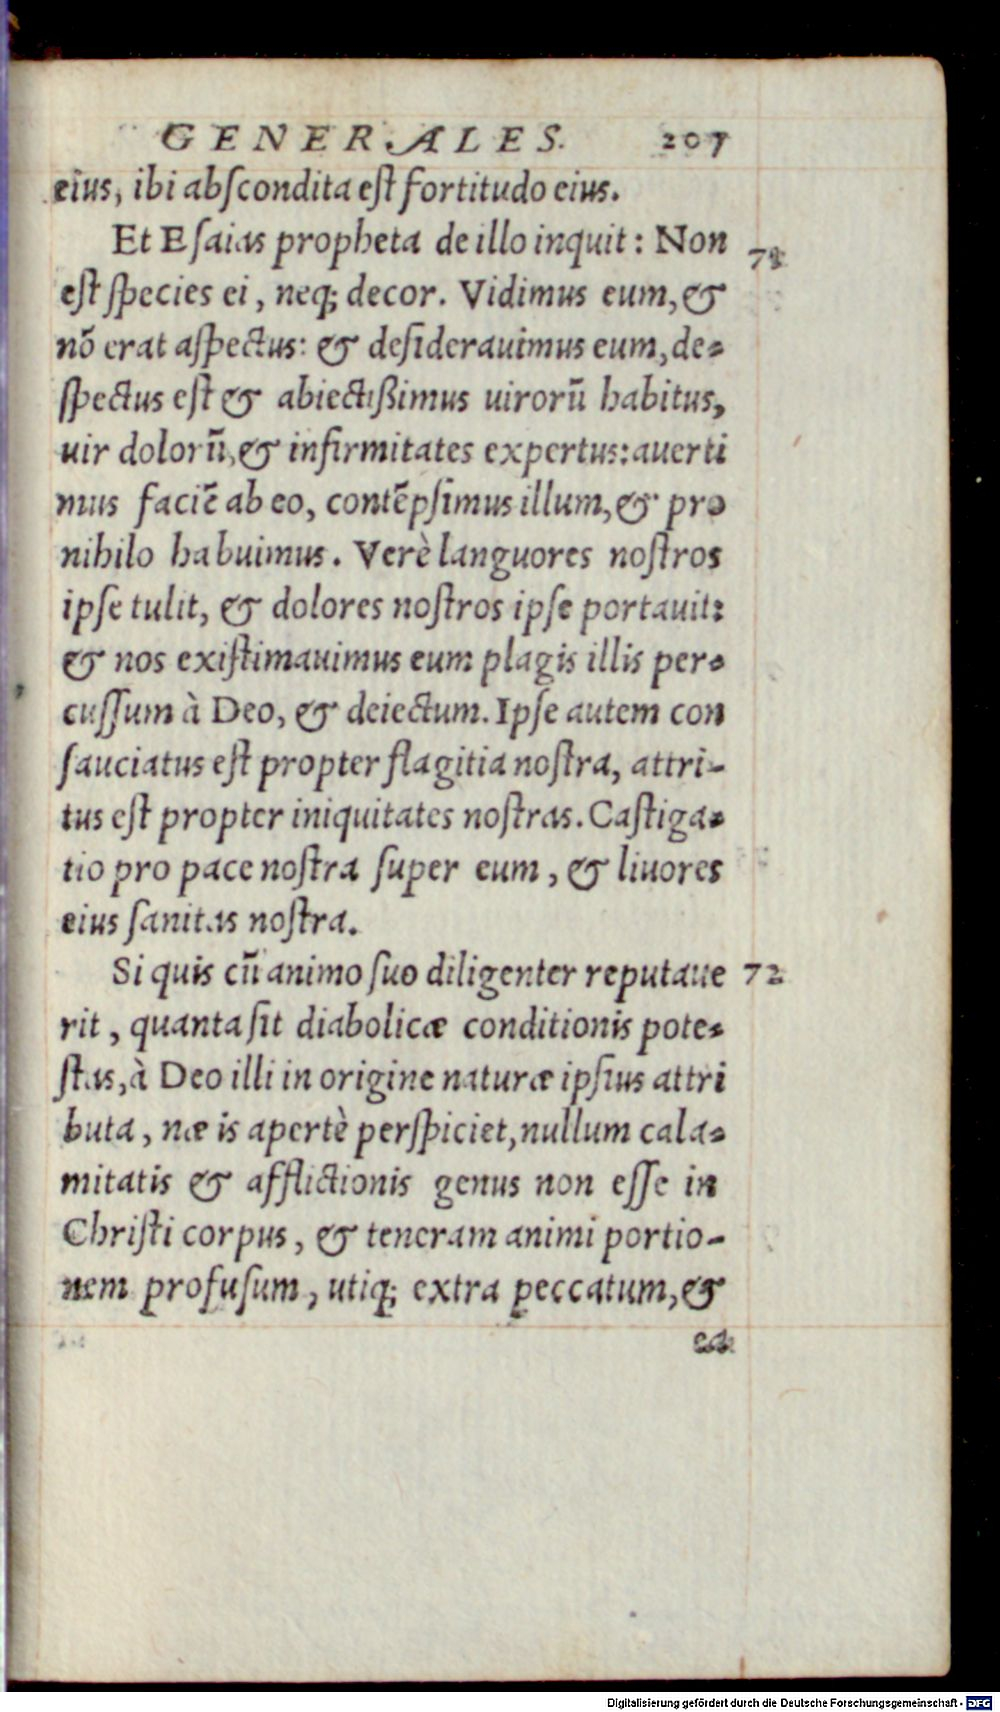 GENERALES. 207
eius, ibi abſcondita eſt fortitudo eius.
Et Eſaias propheta de illo inquit: Non 71
eſt ſpecies ei, neq; decor. Vidimus eum, &
nō erat aſpectus: & deſiderauimus eum, de-
ſpectus eſt & abiectißimus uirorū habitus,
uir dolorū, & infirmitates expertus: auerti
mus faciē ab eo, contēpſimus illum, & pro
nihilo habuimus. Verè languores noſtros
ipſe tulit, & dolores noſtros ipſe portauit:
& nos exiſtimauimus eum plagis illis per-
cuſſum à Deo, & deiectum. Ipſe autem con
ſauciatus eſt propter flagitia noſtra, attri-
tus eſt propter iniquitates noſtras. Caſtiga-
tio pro pace noſtra ſuper eum, & liuores
eius ſanitas noſtra.
Si quis cū animo ſuo diligenter reputaue 72
rit, quanta ſit diabolicæ conditionis pote-
ſtas, à Deo illi in origine naturæ ipſius attri
buta, næ is apertè perſpiciet, nullum cala-
mitatis & afflictionis genus non eſſe in
Chriſti corpus, & teneram animi portio-
nem profuſum, utiq; extra peccatum, &
ea
Digitalisierung gefördert durch die Deutsche Forschungsgemeinschaft - DFG